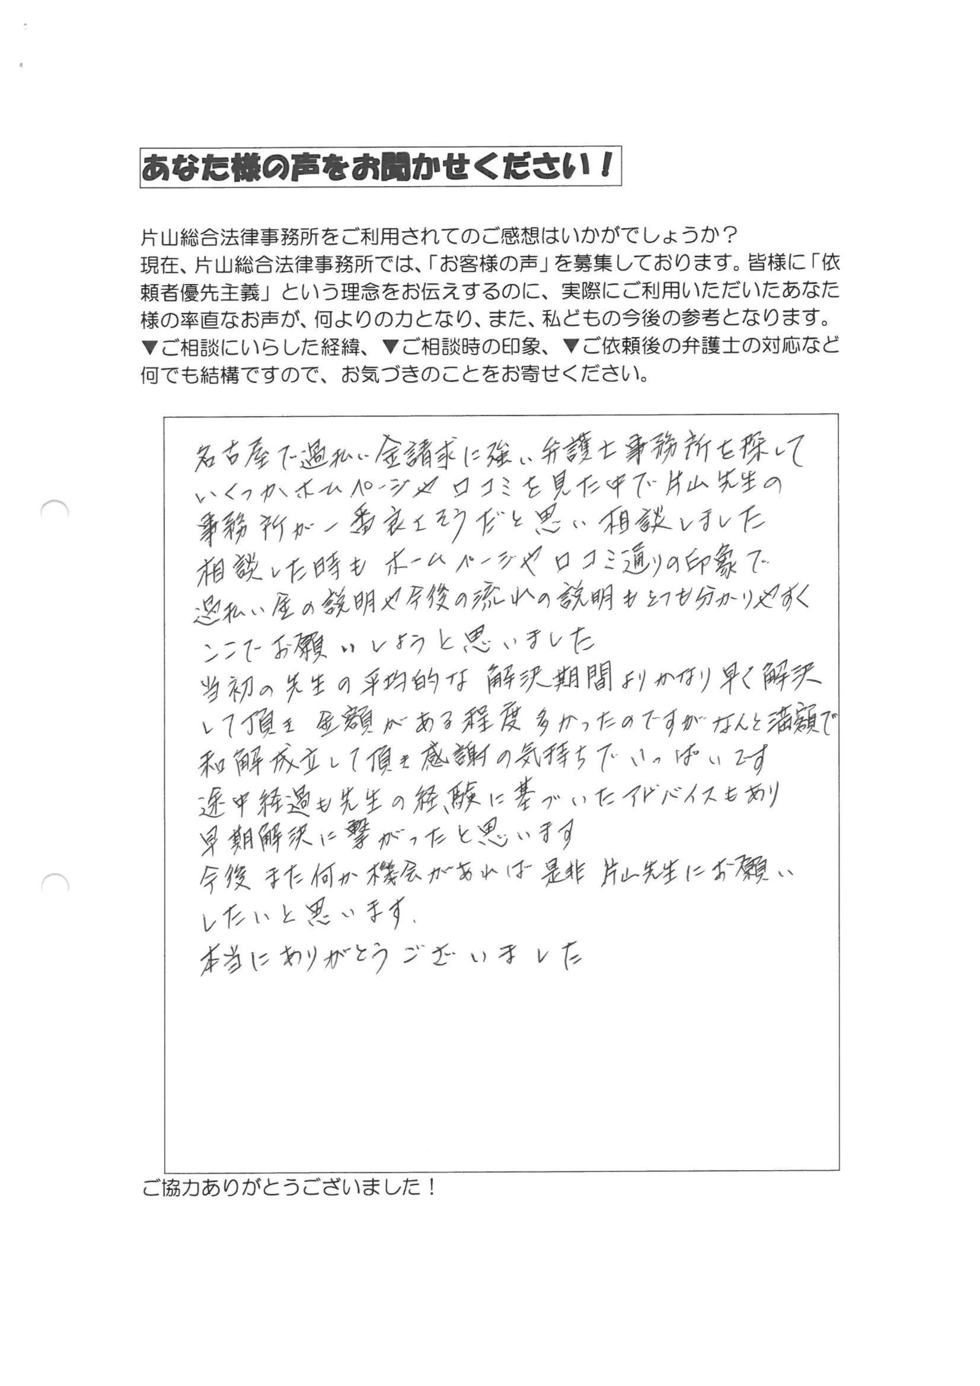 あなた様の声をお聞かせください！
片山総合法律事務所をご利用されてのご感想はいかがでしょうか？
現在、片山総合法律事務所では、「お客様の声」を募集しております。皆様に「依
頼者優先主義」という理念をお伝えするのに、実際にご利用いただいたあなた
様の率直なお声が、何よりの力となり、また、私どもの今後の参考となります。
▼ご相談にいらした経緯、▼ご相談時の印象、▼ご依頼後の弁護士の対応など
何でも結構ですので、お気づきのことをお寄せください。
名古屋で過払い金請求に強い弁護士事務所を探して
いくつかホームページや口コミを見た中で片山先生の
事務所が一番良くそうだと思い相談しました
相談した時もホームページや口コミ通りの印象で
過払い金の説明や今後の流れの説明もとても分かりやすく
ここでお願いしようと思いました
当初の先生の平均的な解決期間よりかなり早く解決
して頂き金額がある程度多かったのですがなんと満額で
和解成立して頂き感謝の気持ちでいっぱいです
途中経過も先生の経験に基づいたアドバイスもあり
早期解決に繋がったと思います
今後また何か機会があれば是非片山先生にお願い
したいと思います.
本当にありがとうございました
ご協力ありがとうございました！